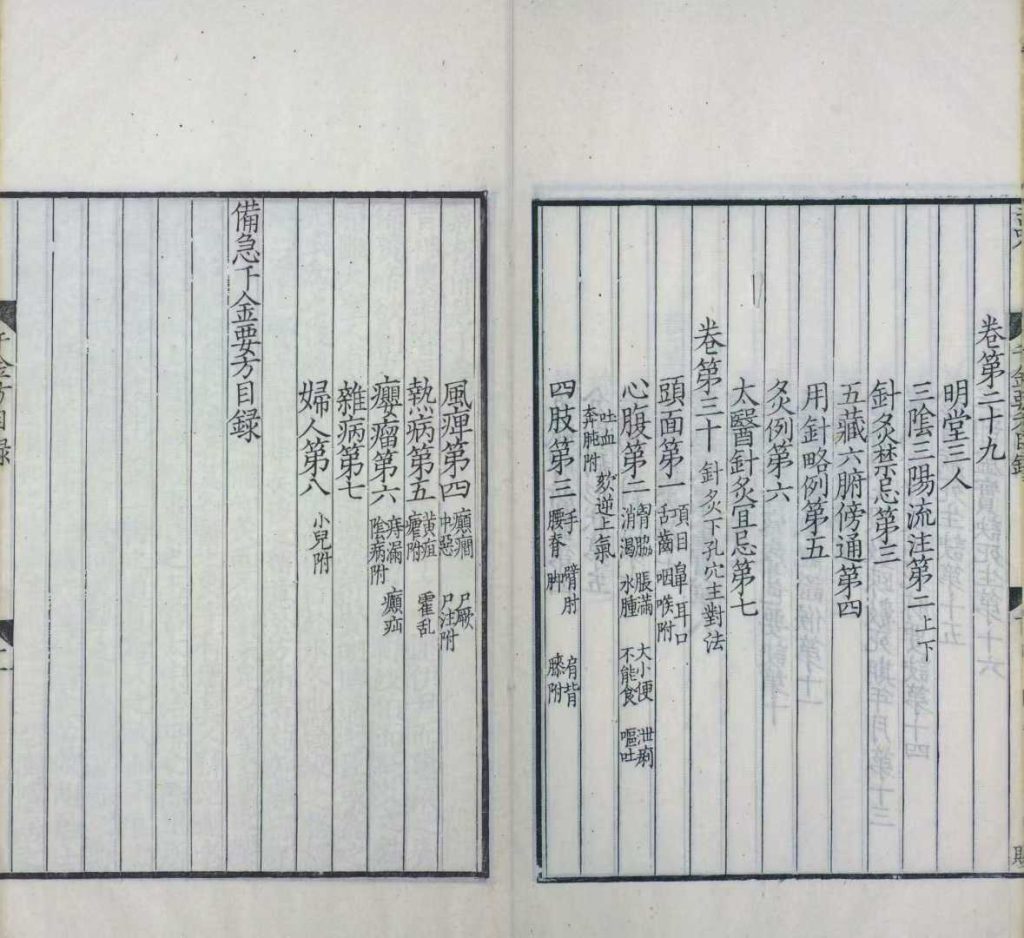 卷第二十九
明堂三人
三陰三陽流注第二上下
針灸禁忌第三
五藏六腑傍通第四
用針略例第五
灸例第六
太醫針灸宜忌第七
卷第三十 針灸下孔穴主對法
頭面第一 項目鼻耳口舌齒咽喉附
心腹第二 胷脇 脹滿 大小便 泄痢 消渴 水腫 不能食 嘔吐
吐血 欬逆上氣 奔肫附
四肢第三 手 臂肘 肩背 腰脊 脚 膝附
風痺第四 癲癇 尸厥 中惡 尸注附
熱病第五 黃疸 霍乱 瘧附
癭瘤第六 痔漏 癲疝 陰病附
雜病第七
婦人第八 小兒附
備急千金要方目録
千金方目録